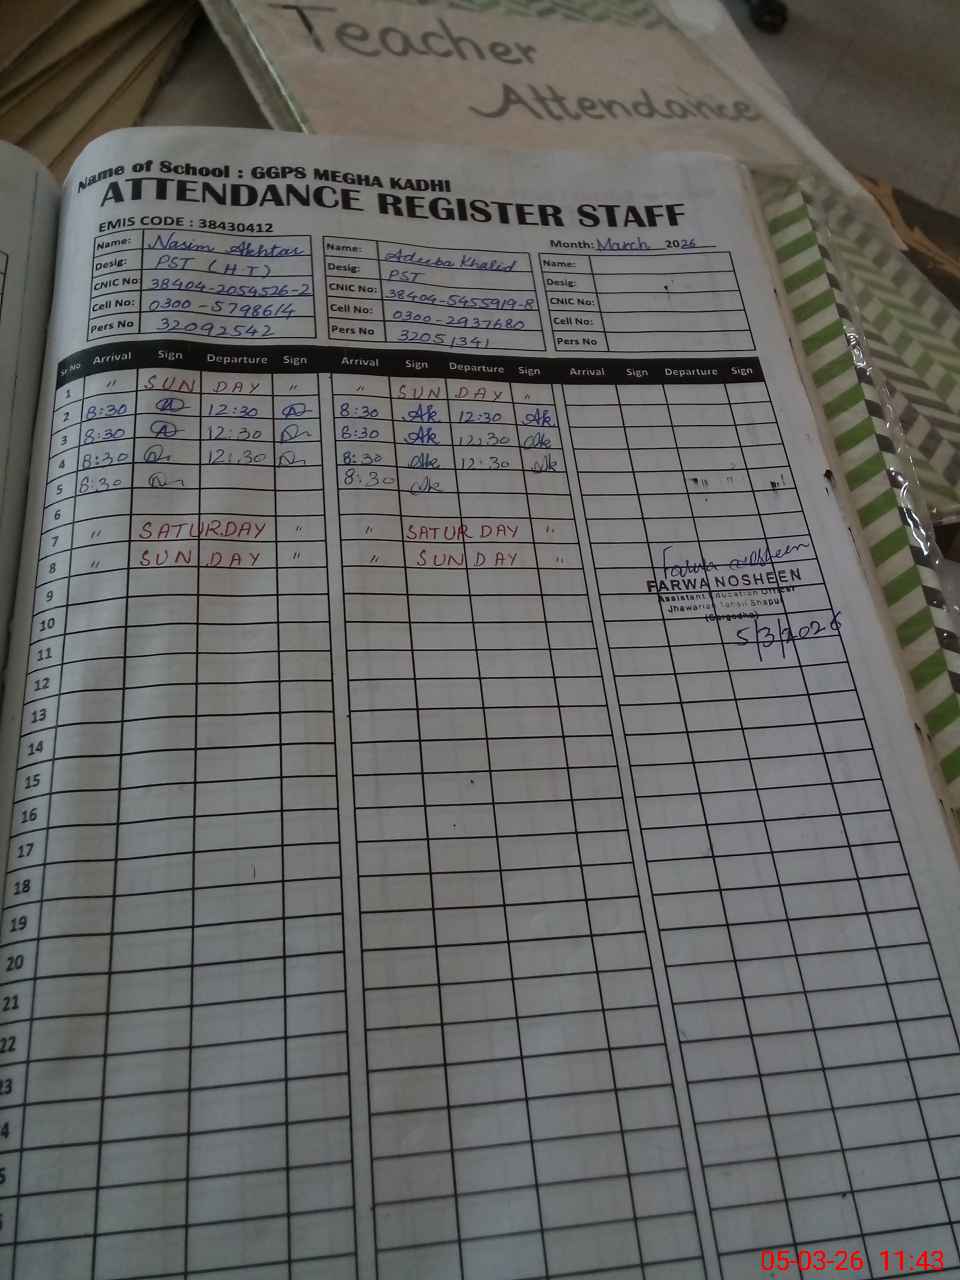 Teacher
Attendance
Name of School : GGPS MEGHA KADHI
ATTENDANCE REGISTER STAFF
EMIS CODE : 38430412
Month: March 2026
Name: Nasim Akhtar Name: Adeeba Khalid Name:
Desig: PST (H.T) Desig: PST Desig:
CNIC No: 38404-2054526-2 CNIC No: 38404-5455919-8 CNIC No:
Cell No: 0300-5798614 Cell No: 0300-2937680 Cell No:
Pers No 32092542 Pers No 32051341 Pers No
Sr No Arrival Sign Departure Sign Arrival Sign Departure Sign Arrival Sign Departure Sign
1 " SUN DAY " " SUN DAY "
2 8:30 12:30 8:30 Ak 12:30 Ak
3 8:30 12:30 8:30 Ak 12:30 Ak
4 8:30 12:30 8:30 Ak 12:30 Ak
5 8:30 8:30 Ak
6
7 " SATURDAY " " SATURDAY "
8 " SUNDAY " " SUNDAY "
Farwa Nosheen
FARWA NOSHEEN
Assistant Education Officer
Jhawarian Tehsil Shapur
(Sargodha)
5/3/2026
9
10
11
12
13
14
15
16
17
18
19
20
21
22
23
4
5
05-03-26 11:43